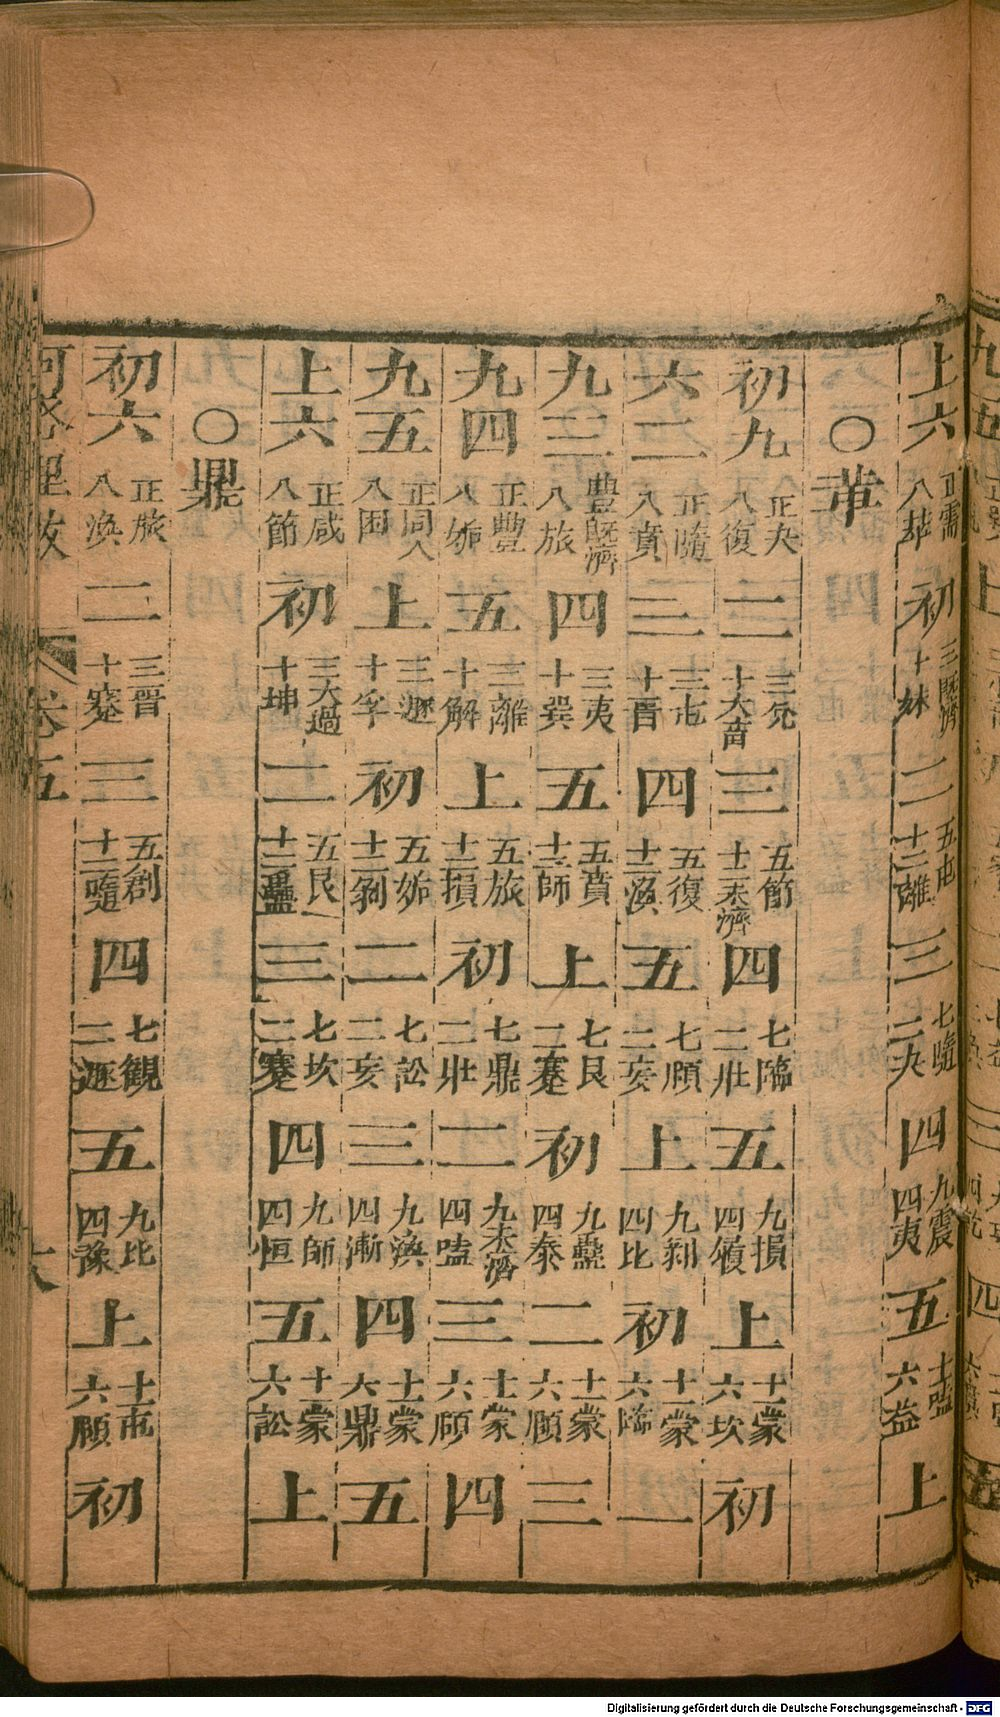 上六 正需 八萃 初 三既濟 十妹 二 五屯 十二離 三 七隨 二夬 四 九震 四夷 五 十一嗑 六益 上
○革
初九 正夬 八復 二 三兊 十大畜 三 五節 十二未濟 四 七臨 二壯 五 九損 四履 上 十一蒙 六坎 初
六二 正隨 八賁 三 三屯 十晋 四 五復 十二渙 五 七頤 二妄 上 九剥 四比 初 十一蒙 六臨 二
九三 豊既濟 八旅 四 三夷 十巽 五 五賁 十二師 上 七艮 二蹇 初 九蠱 四泰 二 十一蒙 六頤 三
九四 正豊 八姤 五 三離 十解 上 五旅 十二損 初 七鼎 二壯 二 九未濟 四嗑 三 十一蒙 六頤 四
九五 正同人 八困 上 三遯 十孚 初 五姤 十二剥 二 七訟 二妄 三 九渙 四漸 四 十一蒙 六鼎 五
上六 正咸 八節 初 三大過 十坤 二 五艮 十二蠱 三 七坎 二蹇 四 九師 四恒 五 十一蒙 六訟 上
○鼎
初六 正旅 八渙 二 三晋 十蹇 三 五剝 十二隨 四 七観 二遯 五 九比 四豫 上 十一屯 六頤 初
河洛理数 卷五 六
Digitalisierung gefördert durch die Deutsche Forschungsgemeinschaft - DFG